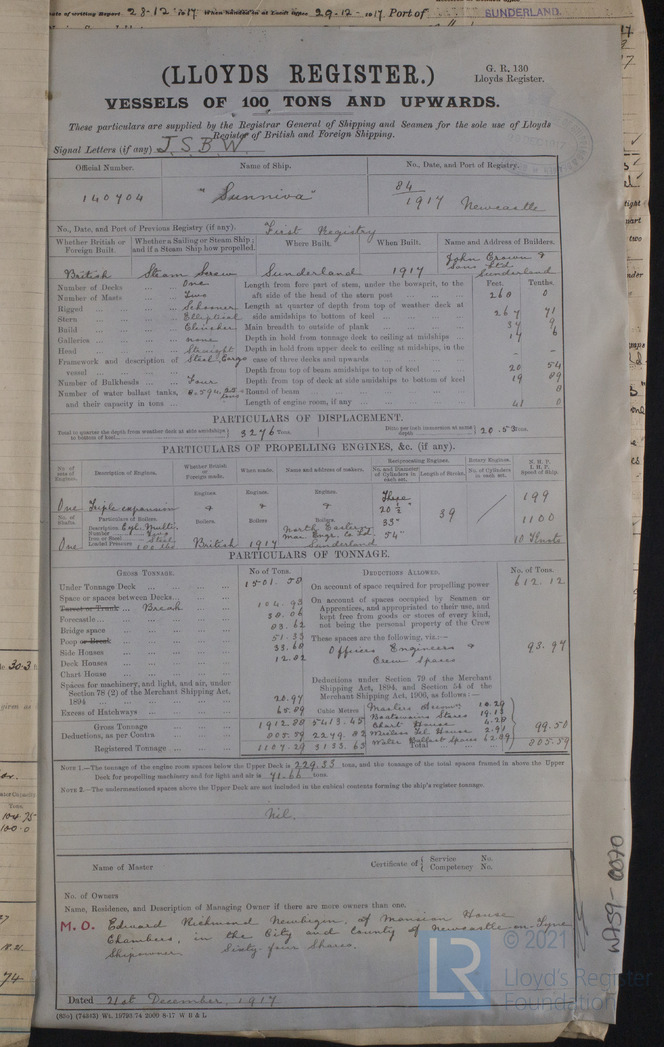 Date of writing Report 28-12-1917 When handed in at Local Office 29-12-1917 Port of SUNDERLAND.
(LLOYDS REGISTER.)
G. R. 130
Lloyds Register.
VESSELS OF 100 TONS AND UPWARDS.
These particulars are supplied by the Registrar General of Shipping and Seamen for the sole use of Lloyds
Register of British and Foreign Shipping.
Signal Letters (if any) J.S.B.W.
Official Number. Name of Ship. No., Date, and Port of Registry.
140704 "Sunniva" 84/1917 Newcastle
No., Date, and Port of Previous Registry (if any). First Registry
Whether British or Foreign Built. Whether a Sailing or Steam Ship; and if a Steam Ship how propelled. Where Built. When Built. Name and Address of Builders.
British Steam Screw Sunderland 1917 John Crown & Sons Ltd Sunderland
Feet. Tenths.
Number of Decks One Length from fore part of stem, under the bowsprit, to the
Number of Masts Two aft side of the head of the stern post 260 0
Rigged Schooner Length at quarter of depth from top of weather deck at
Stern Elliptical side amidships to bottom of keel 267 71
Build Clincher Main breadth to outside of plank 37 9
Galleries none Depth in hold from tonnage deck to ceiling at midships 17 6
Head Straight Depth in hold from upper deck to ceiling at midships, in the
Framework and description of vessel Steel, Cargo case of three decks and upwards - -
Depth from top of beam amidships to top of keel 20 54
Number of Bulkheads Four Depth from top of deck at side amidships to bottom of keel 19 89
Number of water ballast tanks, Round of beam 8
and their capacity in tons Length of engine room, if any 41 0
PARTICULARS OF DISPLACEMENT.
Total to quarter the depth from weather deck at side amidships to bottom of keel 3276 Tons. Ditto per inch immersion at same depth 20.53 Tons.
PARTICULARS OF PROPELLING ENGINES, &c. (if any).
No. of sets of Engines. Description of Engines. Whether British or Foreign made. When made. Name and address of makers. Reciprocating Engines. No. and Diameter of Cylinders in each set. Length of Stroke. Rotary Engines. No. of Cylinders in each set. N. H. P. I. H. P. Speed of Ship.
Engines. Engines. Engines.
One Triple expansion & & & Three 20½" 33" 54" 39 199
No. of Shafts Particulars of Boilers. Boilers. Boilers Boilers. 1100
Description Cyl. Multi.
Number Two
Iron or Steel Steel
Loaded Pressure 180 lbs
One British 1917 North Eastern Mar. Engr. Co Ltd. Sunderland 10 Knots
PARTICULARS OF TONNAGE.
GROSS TONNAGE. No. of Tons. DEDUCTIONS ALLOWED. No. of Tons.
Under Tonnage Deck 1501.50 On account of space required for propelling power 612.12
Space or spaces between Decks On account of spaces occupied by Seamen or
Turret or Trunk Break 124.93 Apprentices, and appropriated to their use, and
Forecastle 30.06 kept free from goods or stores of every kind,
Bridge space 83.62 not being the personal property of the Crew
Poop or Break 51.33 These spaces are the following, viz.:—
Side Houses 33.60 Officers Engineers & Crew Spaces 93.97
Deck Houses 12.82
Chart House
Spaces for machinery, and light, and air, under Deductions under Section 79 of the Merchant
Section 78 (2) of the Merchant Shipping Act, Shipping Act, 1894, and Section 54 of the
1894 20.97 Merchant Shipping Act, 1906, as follows:—
Excess of Hatchways Cubic Metres Masters Rooms 10.29
Boatswains Stores 19.13
Gross Tonnage 5413.45 Chart House 4.20
Deductions, as per Contra 805.59 2279.82 Wireless Tel House 2.99 99.50
Registered Tonnage 1107.29 3133.63 Water Ballast Spaces 62.89
Total 805.59
NOTE 1.—The tonnage of the engine room spaces below the Upper Deck is 229.33 tons, and the tonnage of the total spaces framed in above the Upper
Deck for propelling machinery and for light and air is 71.66 tons.
NOTE 2.—The undermentioned spaces above the Upper Deck are not included in the cubical contents forming the ship's register tonnage.
Nil.
Name of Master Certificate of { Service No. Competency No.
No. of Owners
Name, Residence, and Description of Managing Owner if there are more owners than one.
M.O. Edward Richmond Newbegin, of Mansion House
Chambers, in the City and County of Newcastle-on-Tyne
Shipowner. Sixty-four Shares.
Dated 21st December, 1917
WA59-0070
© 2021
Lloyd's Register
Foundation
LR